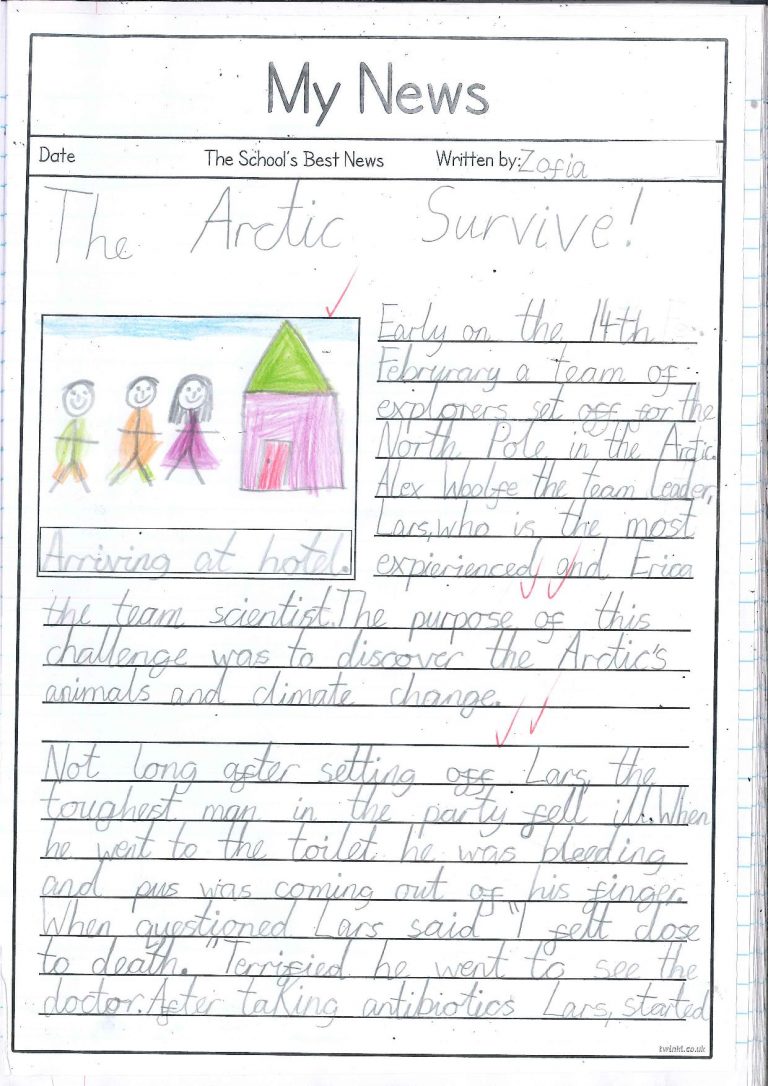 My News
Date The School's Best News Written by: Zofia
The Arctic Survive!
Early on the 14th
Februrary a team of
explorers set off for the
North Pole in the Arctic.
Alex Woolfe the team leader,
Lars, who is the most
expierienced and Erica
Arriving at hotel.
the team scientist. The purpose of this
challenge was to discover the Arctic's
animals and climate change.
Not long after setting off, Lars, the
toughest man in the party fell ill. When
he went to the toilet he was bleeding
and pus was coming out of his finger.
When questioned Lars said "I felt close
to death." Terrified he went to see the
doctor. After taking antibiotics Lars, started
twinkl.co.uk